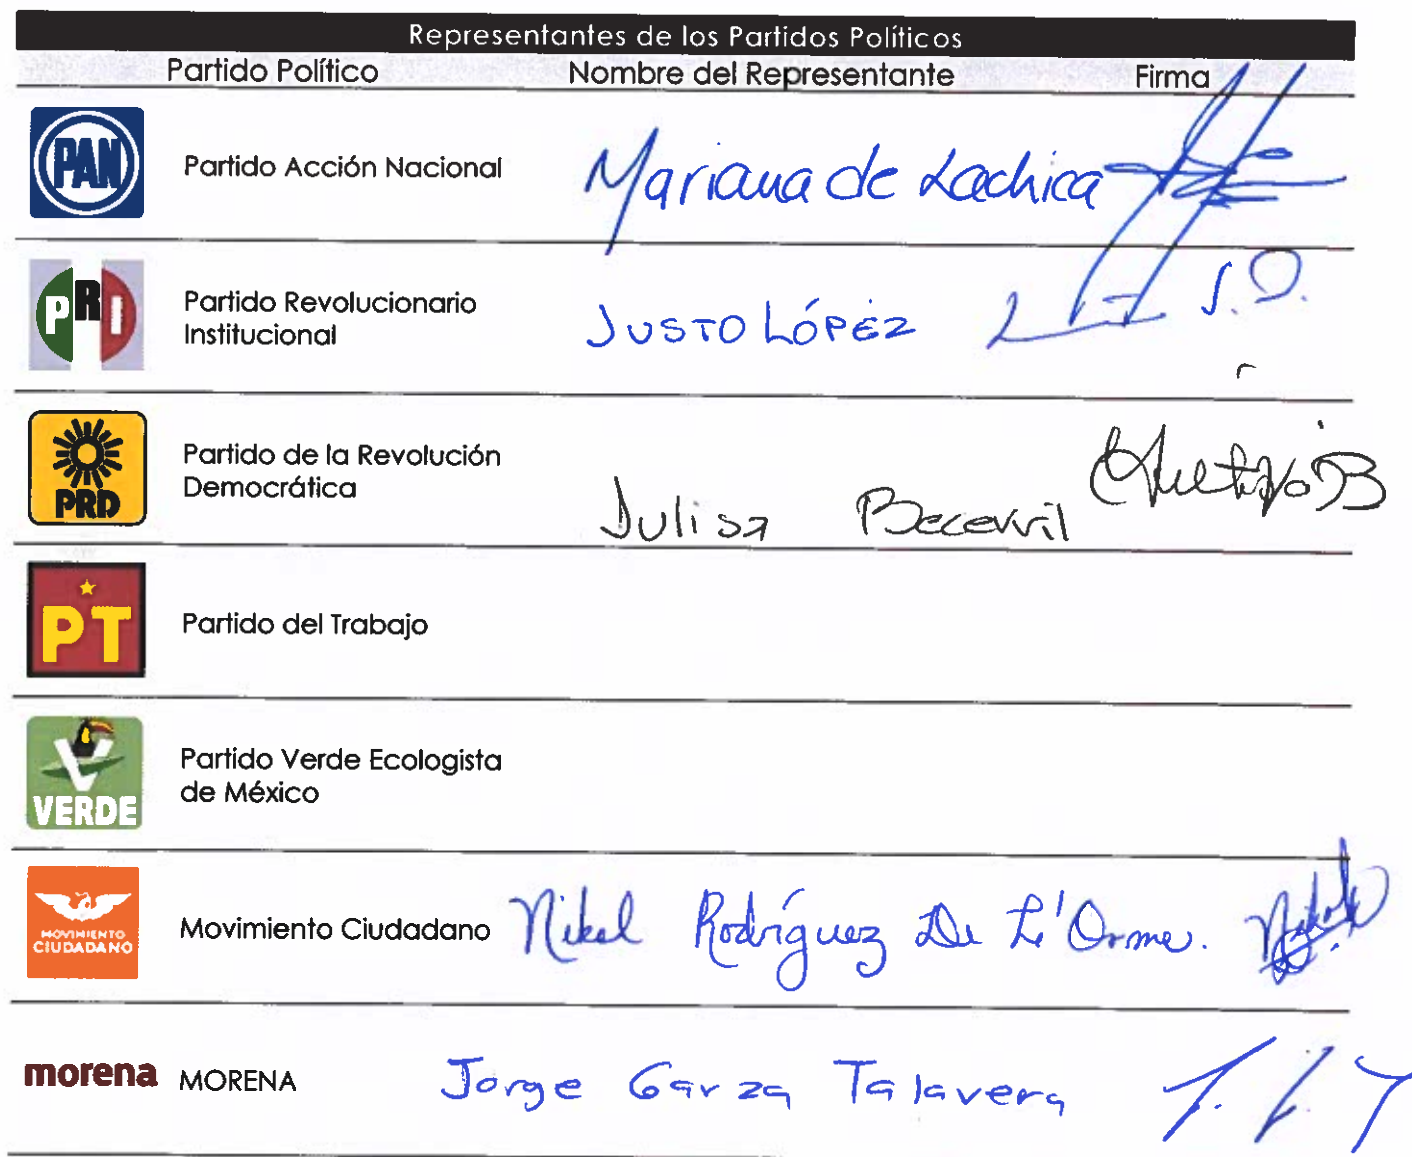 Representantes de los Partidos Políticos
Partido Político Nombre del Representante Firma
PAN Partido Acción Nacional Mariana de Lachica
PRI Partido Revolucionario Institucional JUSTO LÓPEZ J.O.
PRD Partido de la Revolución Democrática Julisa Becerril
PT Partido del Trabajo
VERDE Partido Verde Ecologista de México
MOVIMIENTO CIUDADANO Movimiento Ciudadano Nikol Rodríguez De L'Orme.
morena MORENA Jorge Garza Talavera